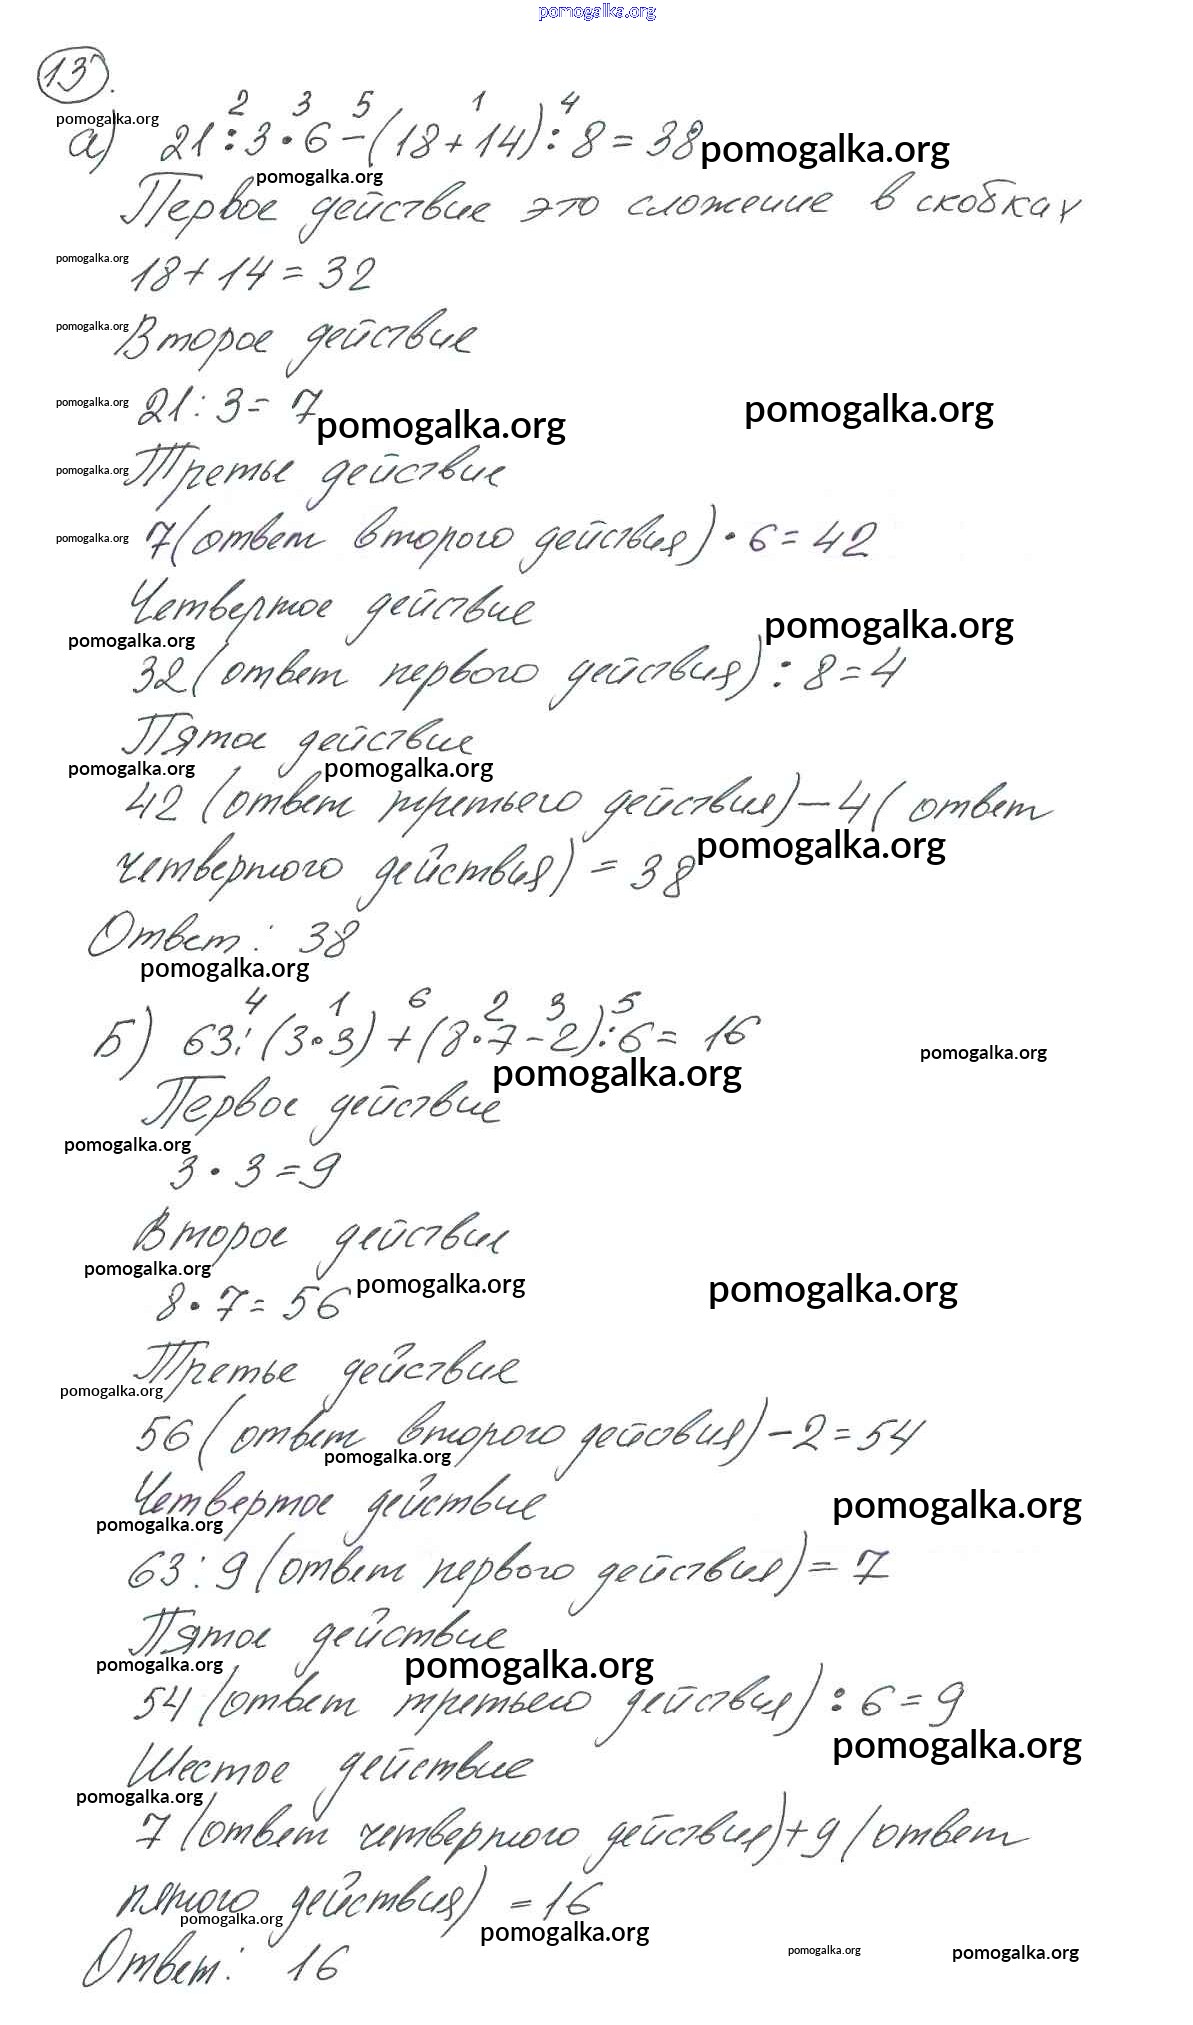 pomogalka.org
13.
2 3 5 1 4
pomogalka.org
а) 21 : 3 · 6 - (18 + 14) : 8 = 38 pomogalka.org
pomogalka.org
Первое действие это сложение в скобках
pomogalka.org 18 + 14 = 32
pomogalka.org Второе действие
pomogalka.org 21 : 3 = 7 pomogalka.org pomogalka.org
pomogalka.org Третье действие
pomogalka.org 7 (ответ второго действия) · 6 = 42
Четвертое действие
pomogalka.org pomogalka.org
32 (ответ первого действия) : 8 = 4
Пятое действие
pomogalka.org pomogalka.org
42 (ответ третьего действия) - 4 (ответ
четвертого действия) = 38 pomogalka.org
Ответ: 38
pomogalka.org
4 1 6 2 3 5
Б) 63 : (3 · 3) + (8 · 7 - 2) : 6 = 16 pomogalka.org
pomogalka.org
Первое действие
pomogalka.org
3 · 3 = 9
Второе действие
pomogalka.org
8 · 7 = 56 pomogalka.org pomogalka.org
Третье действие
pomogalka.org
56 (ответ второго действия) - 2 = 54
pomogalka.org
Четвертое действие pomogalka.org
pomogalka.org
63 : 9 (ответ первого действия) = 7
Пятое действие
pomogalka.org pomogalka.org
54 (ответ третьего действия) : 6 = 9
pomogalka.org
Шестое действие
pomogalka.org
7 (ответ четвертого действия) + 9 (ответ
пятого действия) = 16
pomogalka.org pomogalka.org
Ответ: 16 pomogalka.org pomogalka.org